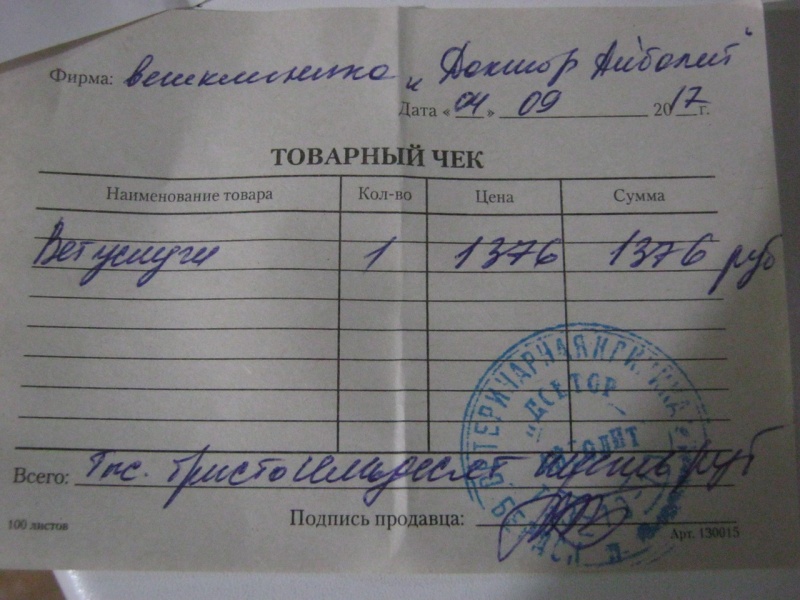 Фирма: ветклиника „Доктор Айболит“
Дата «04» 09 2017 г.
ТОВАРНЫЙ ЧЕК
Наименование товара Кол-во Цена Сумма
Вет услуги 1 1376 1376 руб
ВЕТЕРИНАРНАЯ КЛИНИКА
Всего: Тыс. триста семьдесят шесть руб
Подпись продавца:
100 листов
Арт. 130015